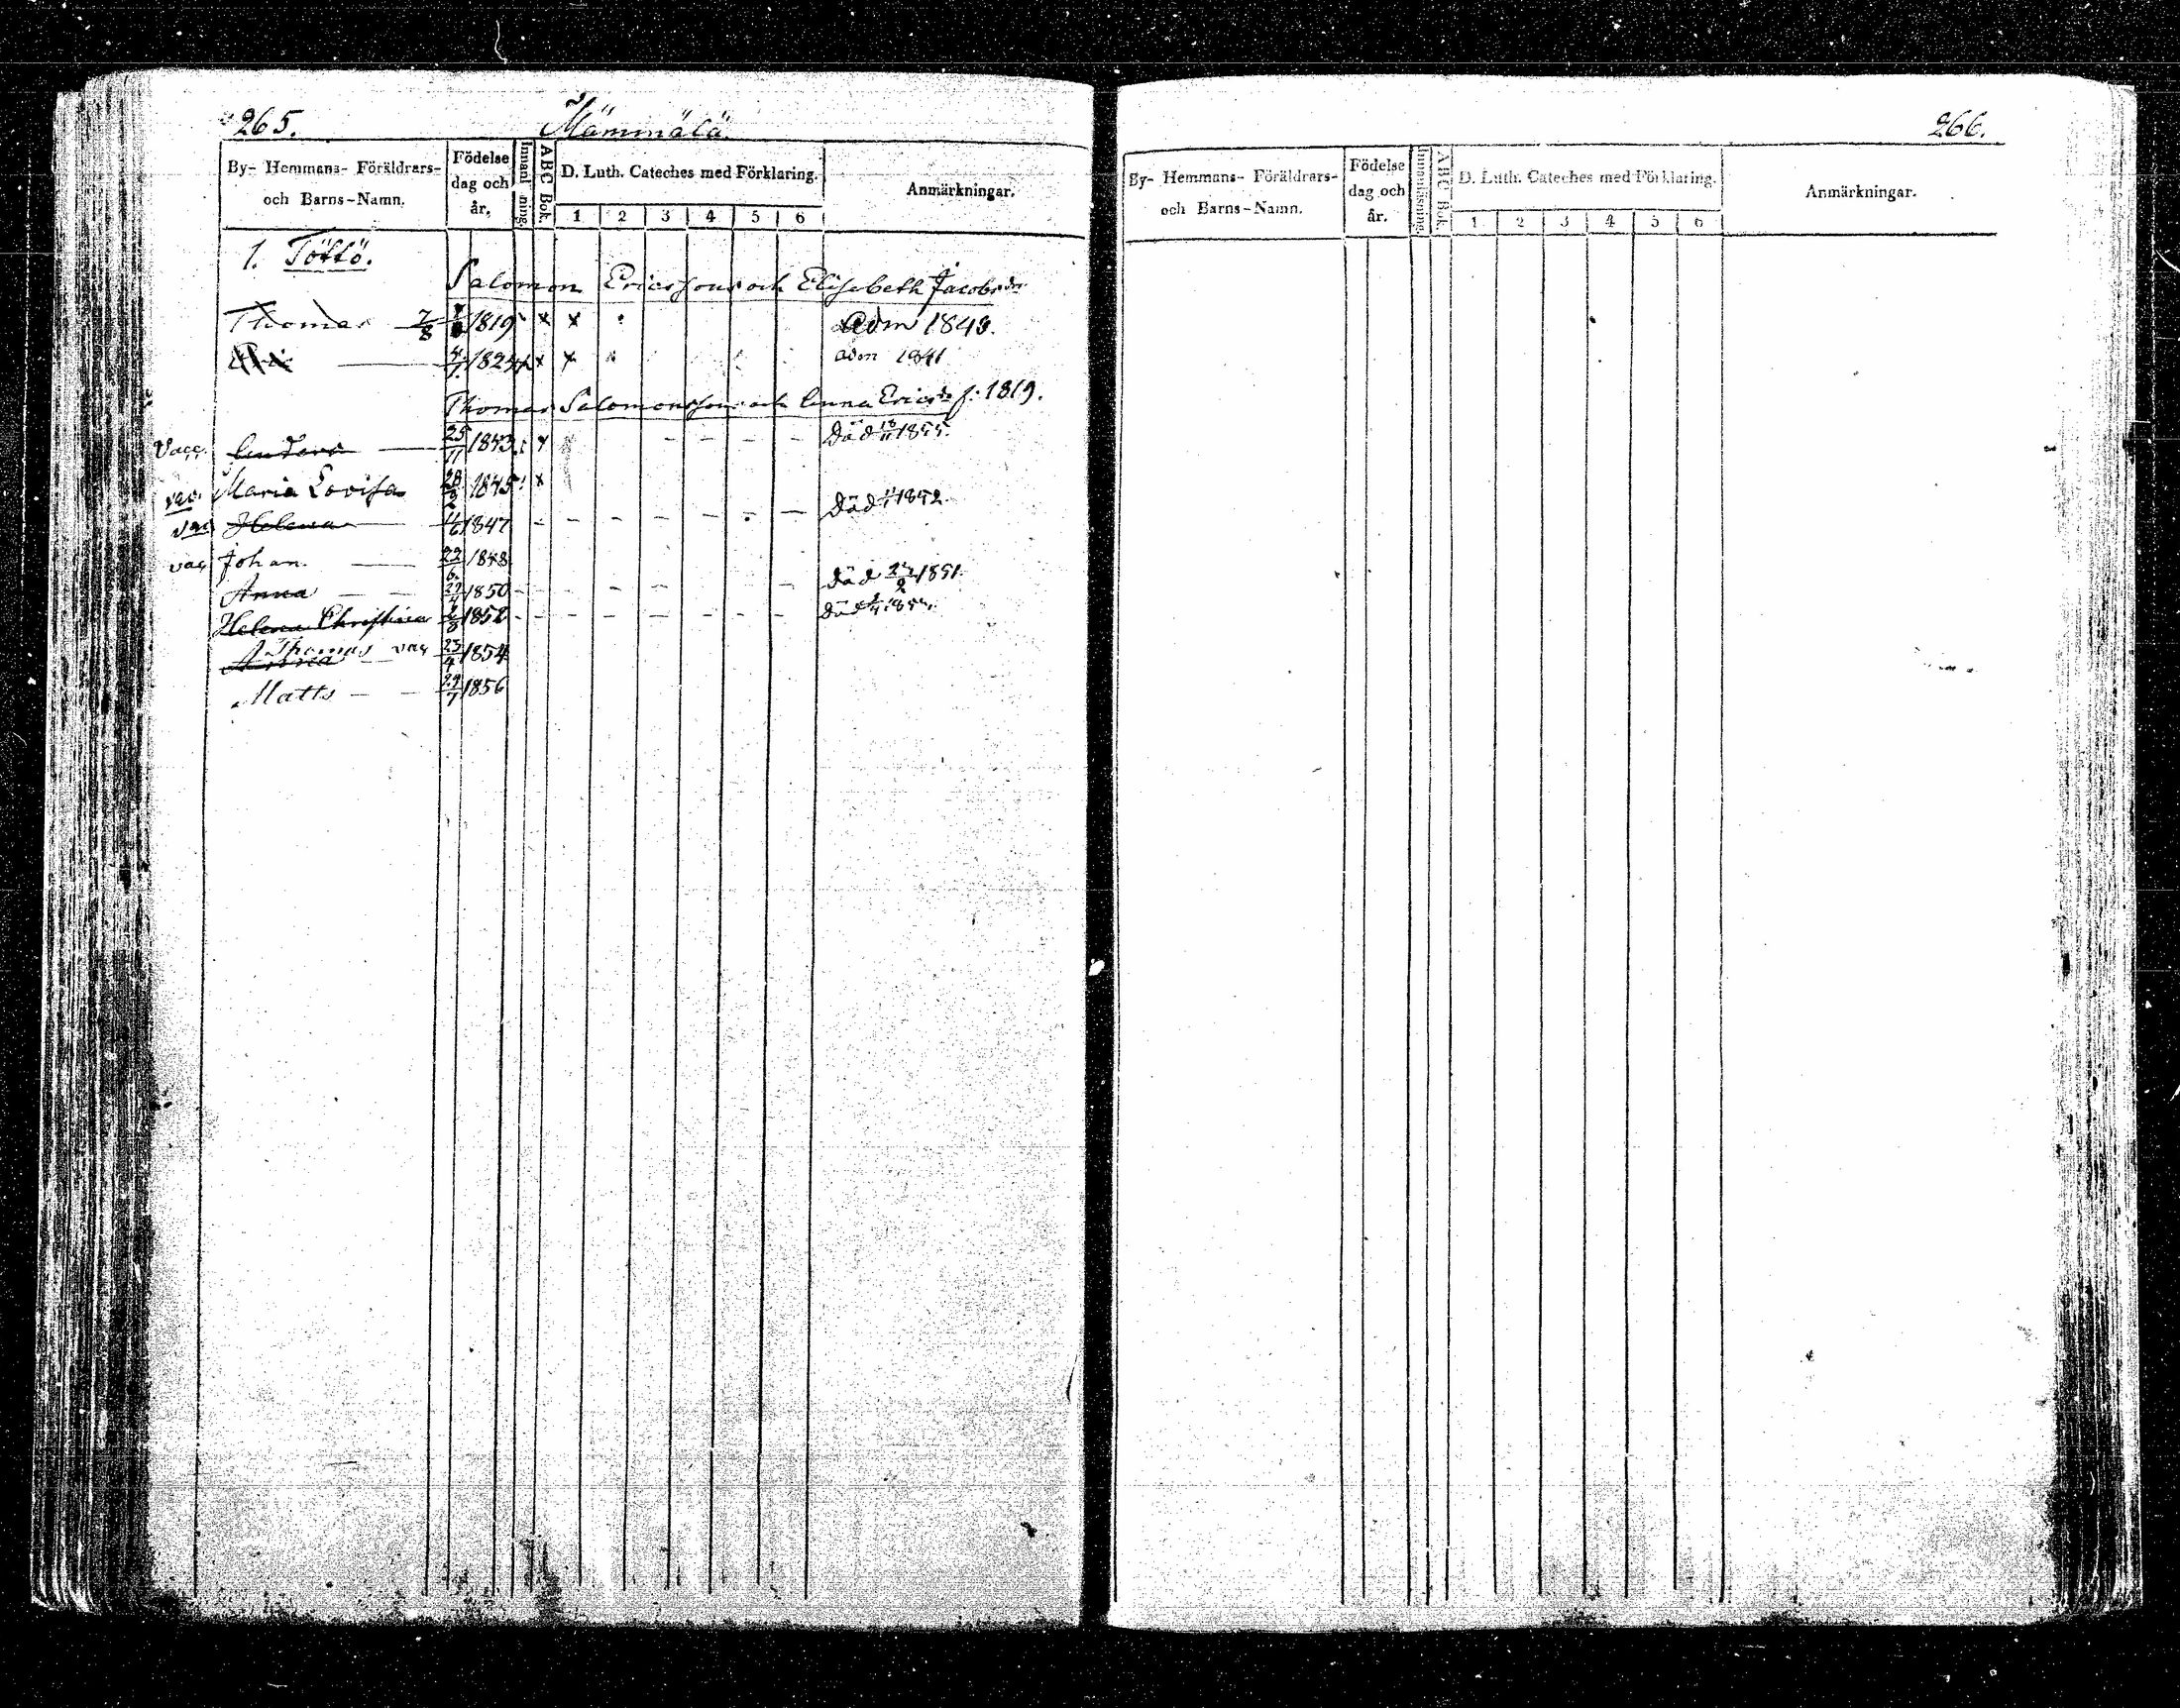 265.
Mämmälä.
By- Hemmans- Föräldrars- och Barns-Namn.
Födelse dag och år.
Innanläsning.
ABC Bok.
D. Luth. Cateches med Förklaring.
1 2 3 4 5 6
Anmärkningar.
1. Töttö.
Salomon Ericssons och Elisabeth Jacobsdr
Thomas 7/8 1819 x x adm 1843.
4/7 1824 x x x adm 1841
Thomas Salomonsson och Anna Ericsdr f. 1819.
Vacc. 25/11 1843 Död 18/11 1855.
vac. Maria Lovisa 1845 x
vac Helena 1847 - - - - - - Död 1852.
vac Johan. 22/6 1848
Anna 1850 - - - - - Död 1851.
Helena Christina 2/8 1852 - - - - - - Död
Anna Thomas vac 23/4 1854
Matts 29/7 1856
266.
By- Hemmans- Föräldrars- och Barns-Namn.
Födelse dag och år.
Innanläsning.
ABC Bok.
D. Luth. Cateches med Förklaring.
1 2 3 4 5 6
Anmärkningar.